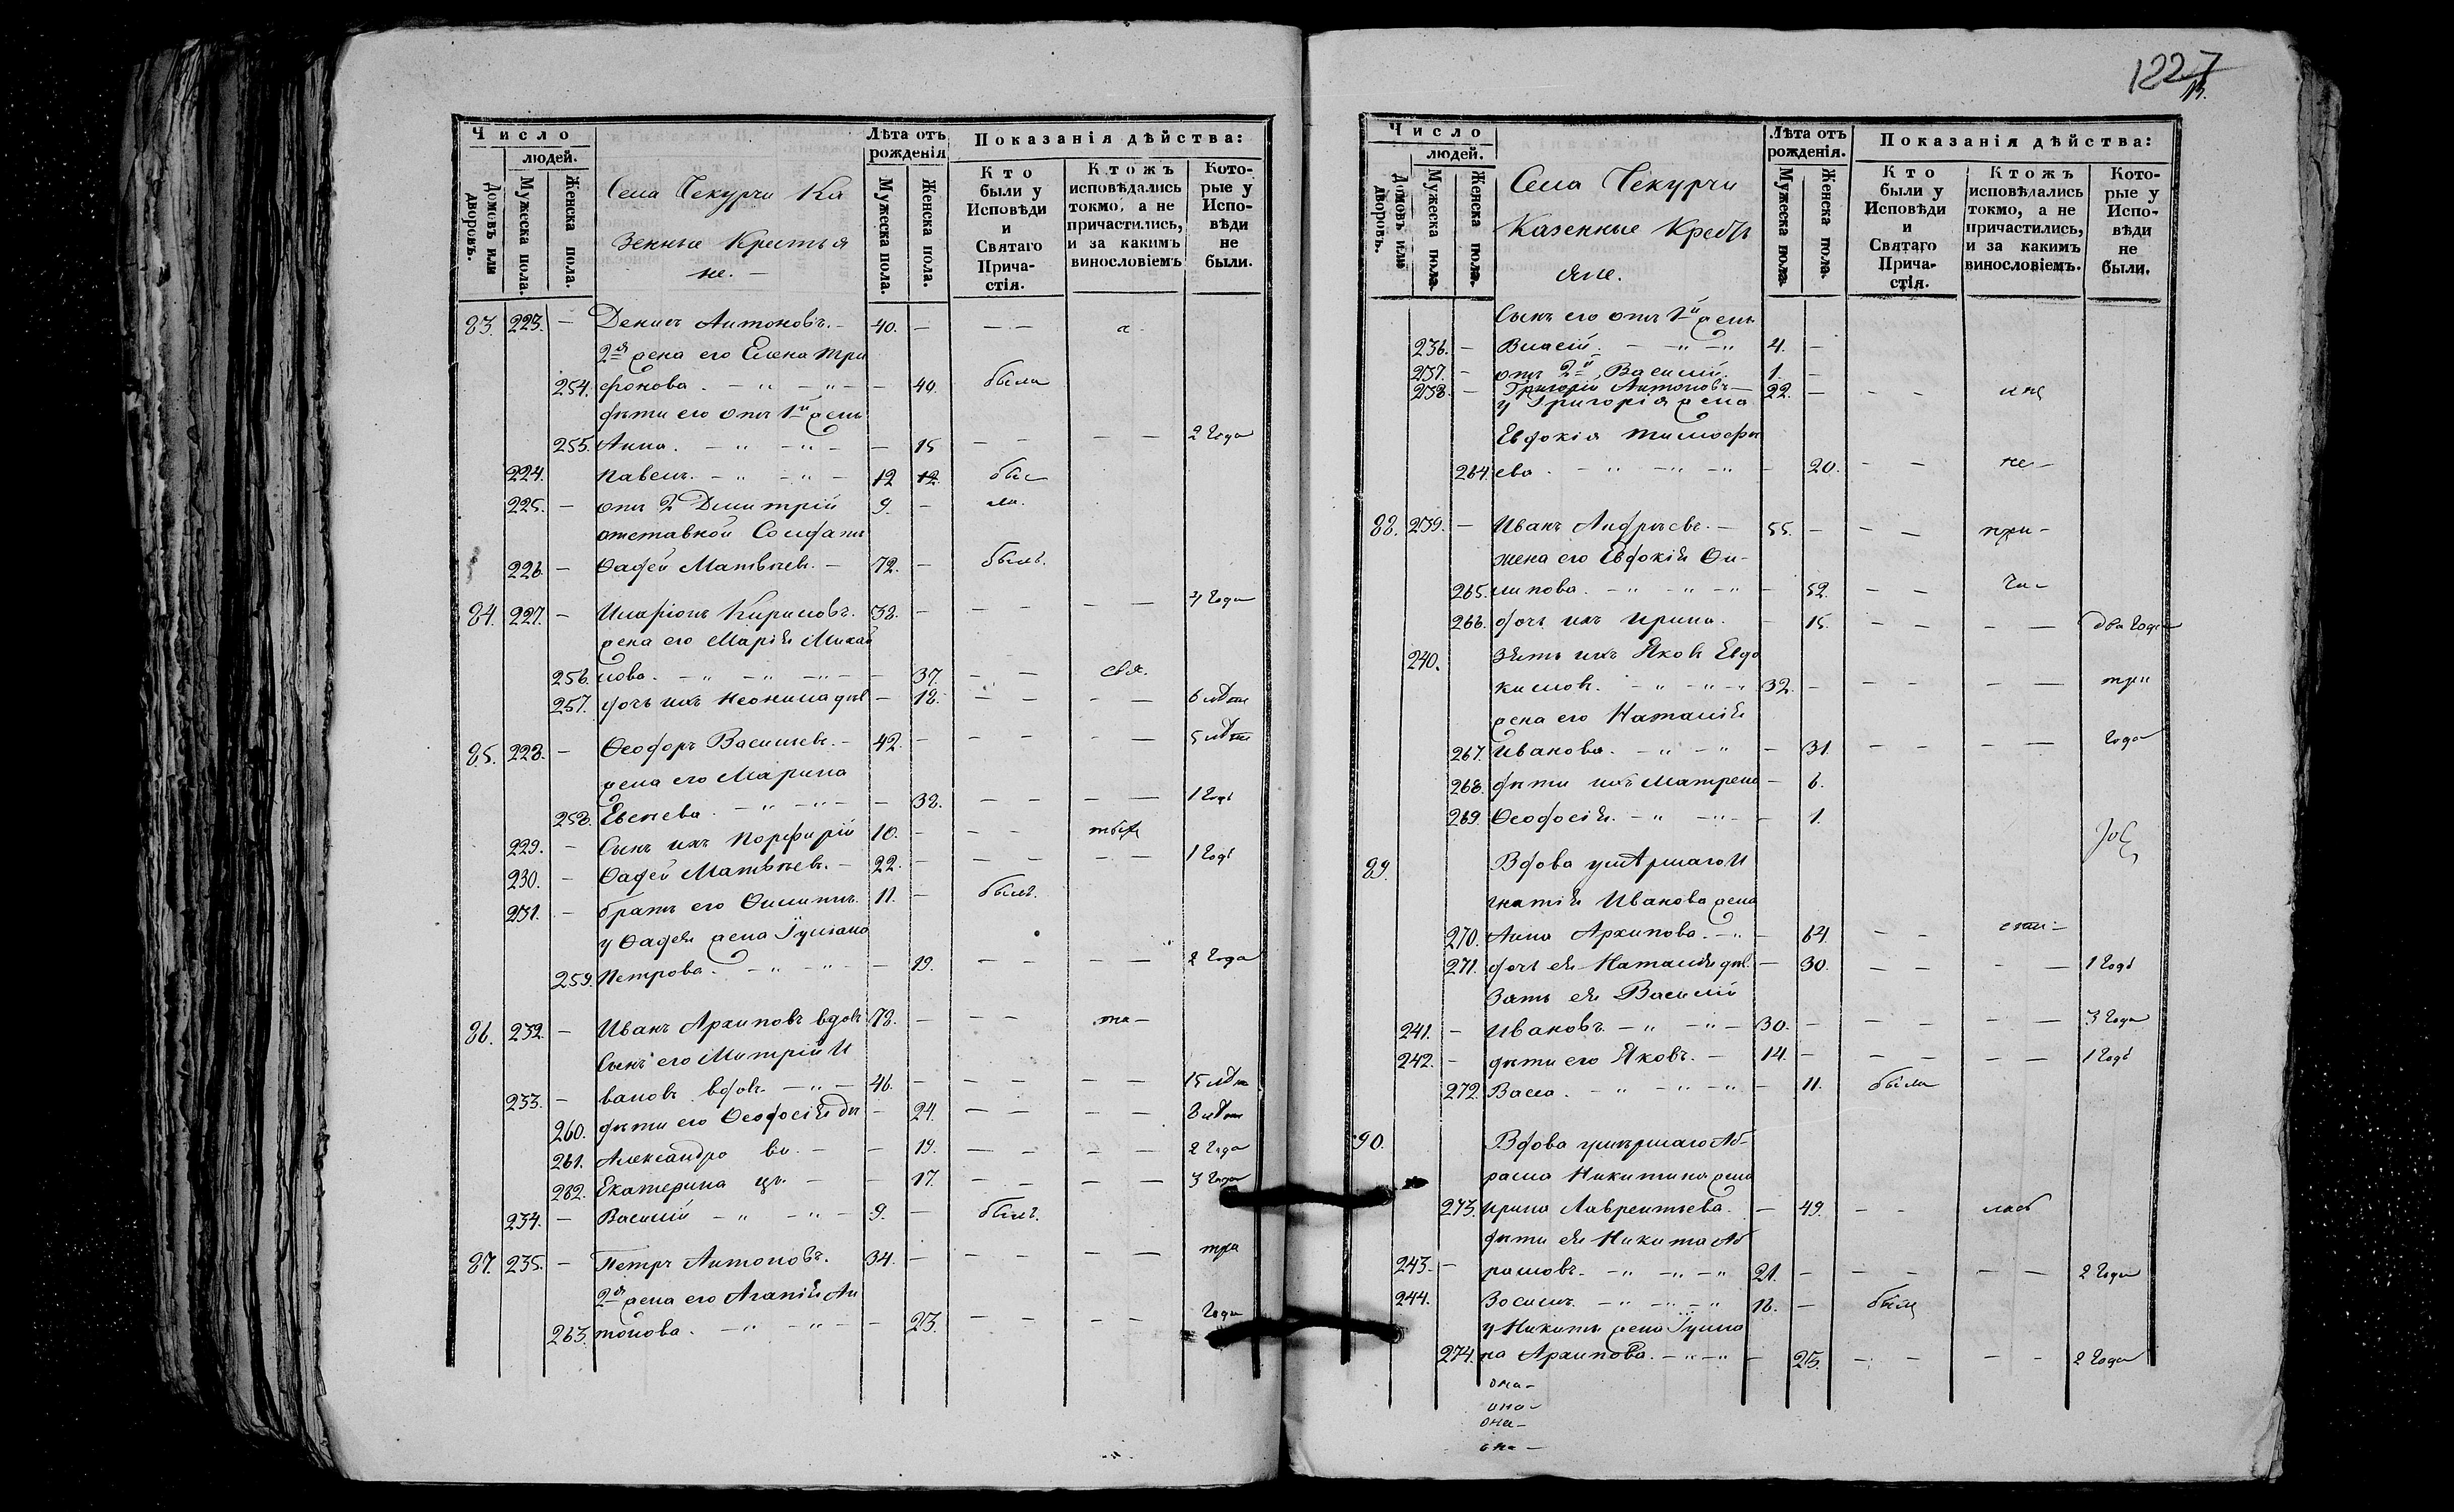 Число
людей.
Домовъ или дворовъ.
Мужеска пола.
Женска пола.
Села Чекурчи Ка
зенные Крестья
не. —
Лѣта отъ рожденія
Мужеска пола.
Женска пола.
Показанія дѣйства:
Кто были у Исповѣди и Святаго Прича-стія.
Ктожъ исповѣдались токмо, а не причастились, и за какимъ винословіемъ
Кото-рые у Испо-вѣди не были.
83. 223. — Денисъ Антоновъ. — 40. — — —
2я жена его Елена Три
254. фонова. — „ — „ — — 40. была
дѣти его отъ 1й жены
255. Анна. — „ — „ — — 15 — — — — 2 года
224. Павелъ. — „ — „ — 12 12
225. — отъ 2 Дмитрій 9. —
отставной Солдатъ
226. — Ѳадей Матвѣевъ. — 72. — былъ.
84. 227. — Иларіонъ Кириловъ. 38. — — — — — 4 года
жена его Марія Михай
256. лова. — „ — „ — „ — — 37. — — свя.
257. дочь ихъ Неонила дѣв — 18. — — — — 6 лѣтъ
85. 228. — Ѳеодоръ Васильевъ. — 42. — — — — — 5 лѣтъ
жена его Марина
258. Евсеева. — „ — „ — — 38. — — — — 1 годъ
229. — Сынъ ихъ Порфирій 10. — — —
230. — Ѳадей Матвѣевъ. — 22. — — — — — 1 годъ
231. — братъ его Филиппъ. 11. — былъ.
у Ѳадея жена Іуліана
259. Петрова. — „ — „ — — 19. — — — — 2 года
86. 232. — Иванъ Архиповъ вдовъ 78. — — — та —
Сынъ его Митрій И
233. — вановъ вдовъ. — „ — 46. — — — — — 15 лѣтъ
260. дѣти его Ѳеодосія дѣ — 24. — — — — 8 лѣтъ
261. Александра ви. — — 19. — — — — 2 года
262. Екатерина цы. — — 17. — — — — 3 года
234. — Василій — „ — „ — 9. — былъ.
87. 235. — Петръ Антоновъ. 34. — — — — — три
2я жена его Агапія Ан
263. тонова. — „ — „ — — 23. — — — — года
1227
Число
людей.
Домовъ или дворовъ.
Мужеска пола.
Женска пола.
Села Чекурчи
Казенные Кресть
яне.
Лѣта отъ рожденія.
Мужеска пола.
Женска пола.
Показанія дѣйства:
Кто были у Исповѣди и Святаго Прича-стія.
Ктожъ исповѣдались токмо, а не причастились, и за какимъ винословіемъ.
Кото-рые у Испо-вѣди не были.
Сынъ его отъ 1й жены
236. — Власій. — „ — „ 4. —
237. — отъ 2й Василій. 1. —
238. — Григорій Антоновъ — 22. — — —
у Григорія жена
Евдокія Тимофе
264. ева. — „ — „ — „ — 20. — — не —
88. 239. — Иванъ Андреевъ. — 55. — — — при —
жена его Евдокія Фи-
265. липова. — „ — „ — „ — 52. — — ча —
266. дочь ихъ Ирина. — 15. — — — — два года
240. Зять ихъ Яковъ Евдо
кимовъ. — „ — „ — „ 32. — — — — — три
жена его Наталія
267. Иванова. — „ — „ — 31. — — — — года
268. дѣти ихъ Матрена — 6.
269. Ѳеодосія. — „ — „ — 1.
89. Вдова умершаго И
гнатія Иванова жена
270. Анна Архипова. — „ — 64. — —
271. дочь ея Наталія дѣв. — 30. — — — — 1 годъ
Зять ея Василій
241. — Ивановъ — „ — „ — 30. — — — — — 3 года
242. — дѣти его Яковъ. — 14. — — — — — 1 годъ
272. Васса. — „ — „ — „ — 11. была
90. Вдова умершаго Аб-
рама Никитина жена
273. Ирина Лаврентьева. — 49. — —
дѣти ея Никита Аб
243. — рамовъ. — „ — „ — „ 21. — — — — — 2 года
244. Василій. — „ — „ — „ 18. — былъ
у Никиты жена Іулiа
274. на Архипова. — „ — „ — 25. — — — — 2 года
она —
она —
она —
она —